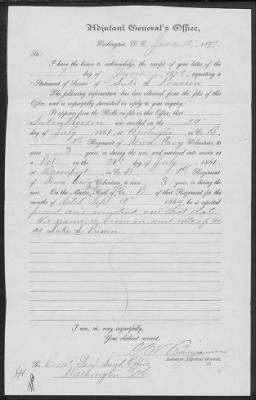 Adjutant General's Office,
Washington, D. C. June 12 1879.
Sir:
I have the honor to acknowledge the receipt of your letter of the
7 day of 1879, requesting a
"Statement of Service" of Luke D.
The following information has been obtained from the files of this
Office, and is respectfully furnished in reply to your inquiry:
It appears from the Rolls on file in this Office, that
was enrolled on the day
of July 1861, at Burlington in Co. B,
1st Regiment of Iowa Cavy Volunteers, to
serve 3 years, or during the war, and mustered into service as
a Pvt on the day of July, 1861,
at Davenport, in Co. B, 1st Regiment
of Iowa Cavy Volunteers, to serve 3 years, or during the
war. On the Muster Roll of Co. B of that Regiment for the
months of dated Sept 9" 1864, he is reported
present and mustered out that date
His name is borne on roll of Co
as Luke D.
I am, sir, very respectfully,
Your obedient servant,
Assistant Adjutant General.
The
Washington D.C.